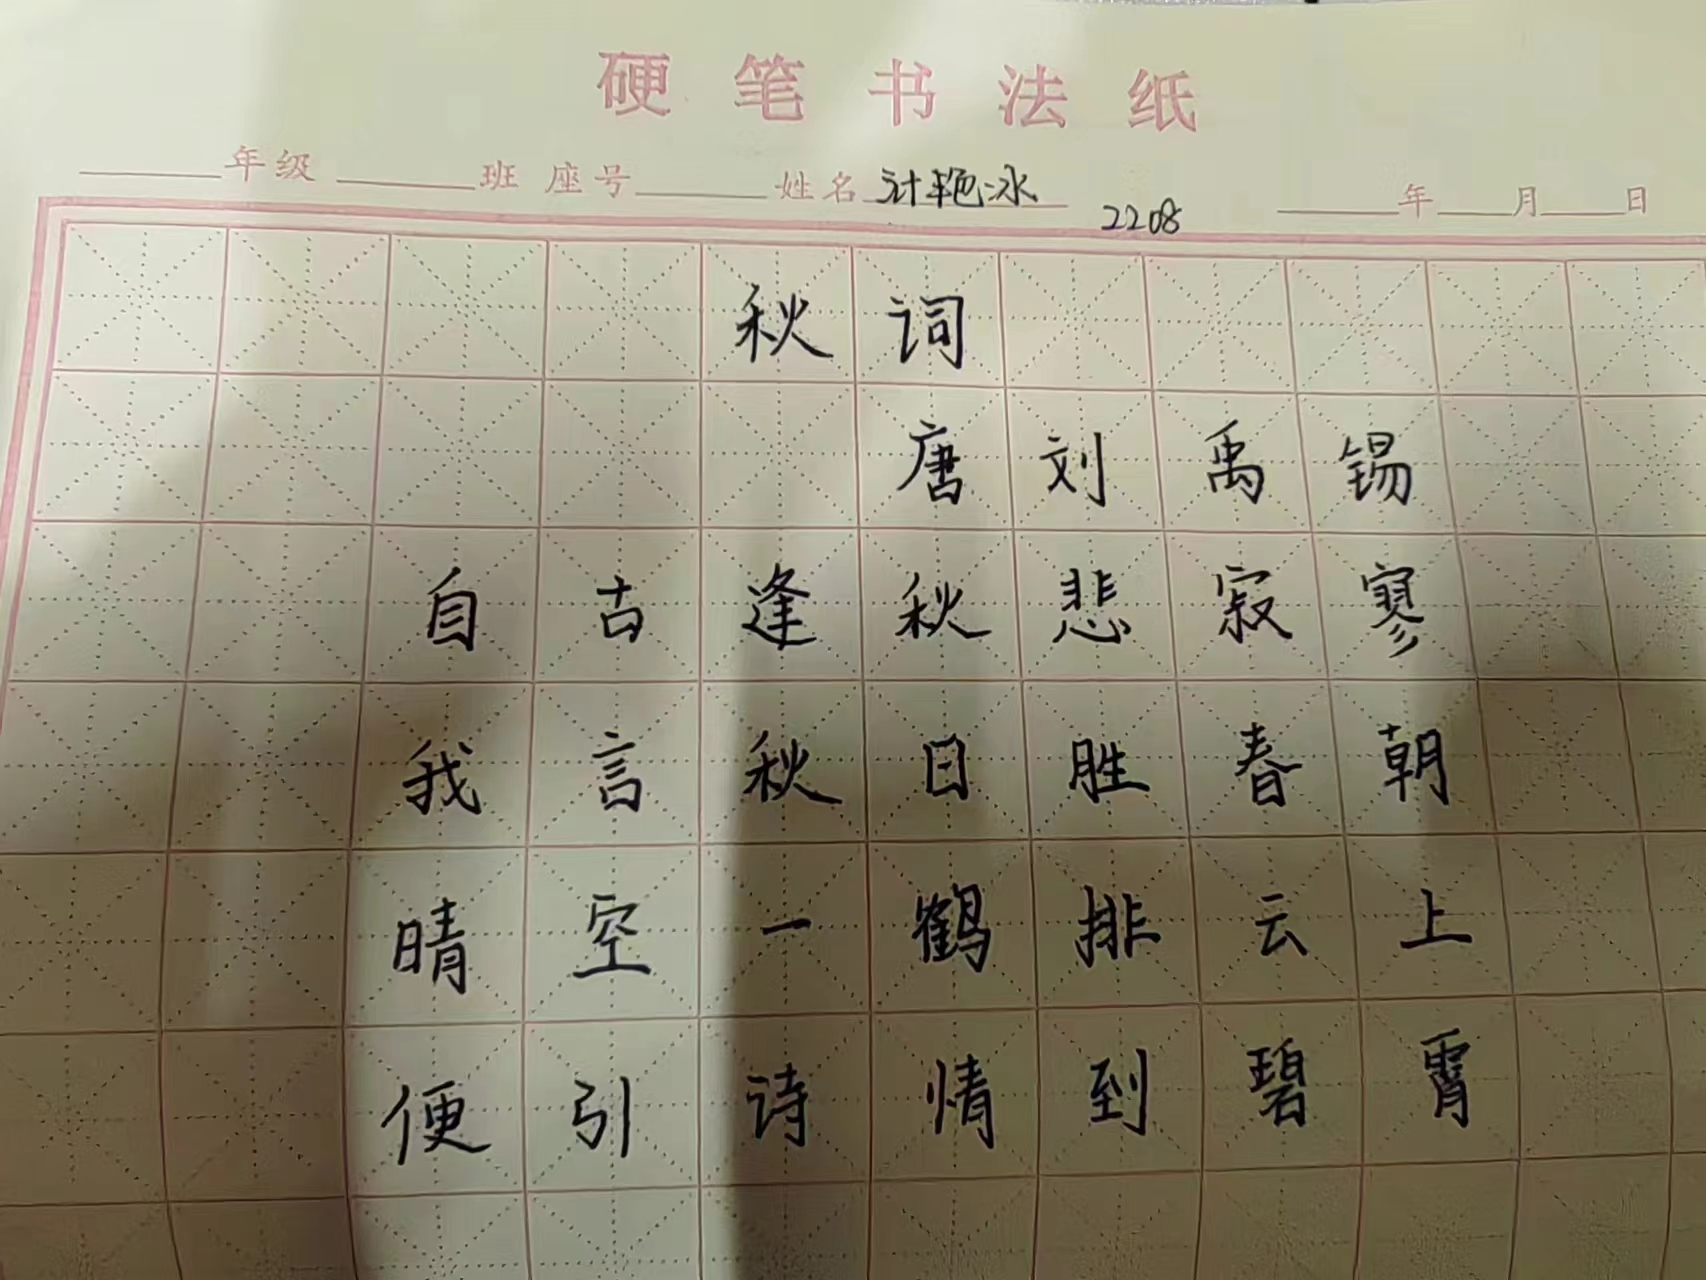 硬笔书法纸
年级 班 座号 姓名 计艳冰 年 月 日
2208
秋词
唐刘禹锡
自古逢秋悲寂寥
我言秋日胜春朝
晴空一鹤排云上
便引诗情到碧霄